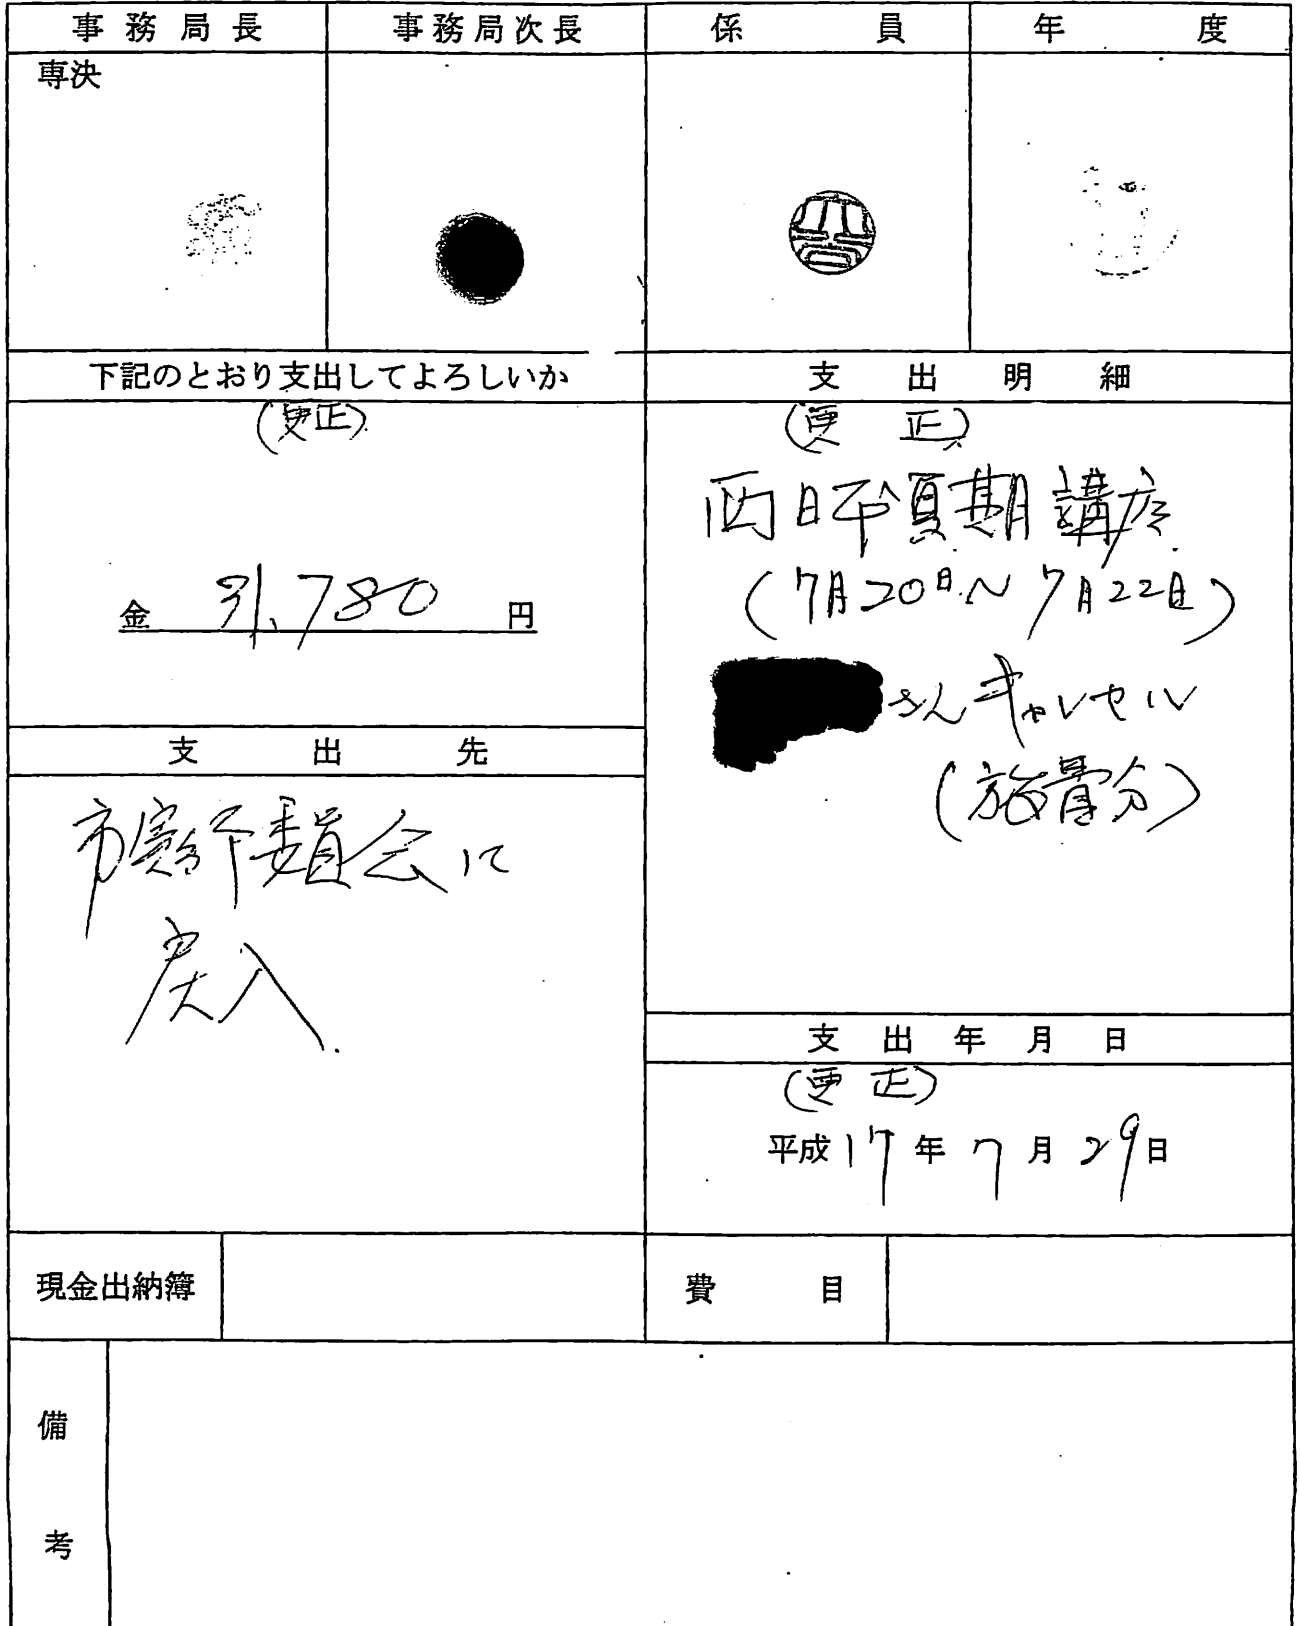 事務局長 事務局次長 係員 年度
専決
下記のとおり支出してよろしいか
(更正)
金 31,780 円
支出先
市実行委員会に
戻入.
支出明細
(更正)
西日本夏期講座
(7月20日~7月22日)
さんキャンセル
(旅費分)
支出年月日
(更正)
平成17年7月29日
現金出納簿
費目
備考